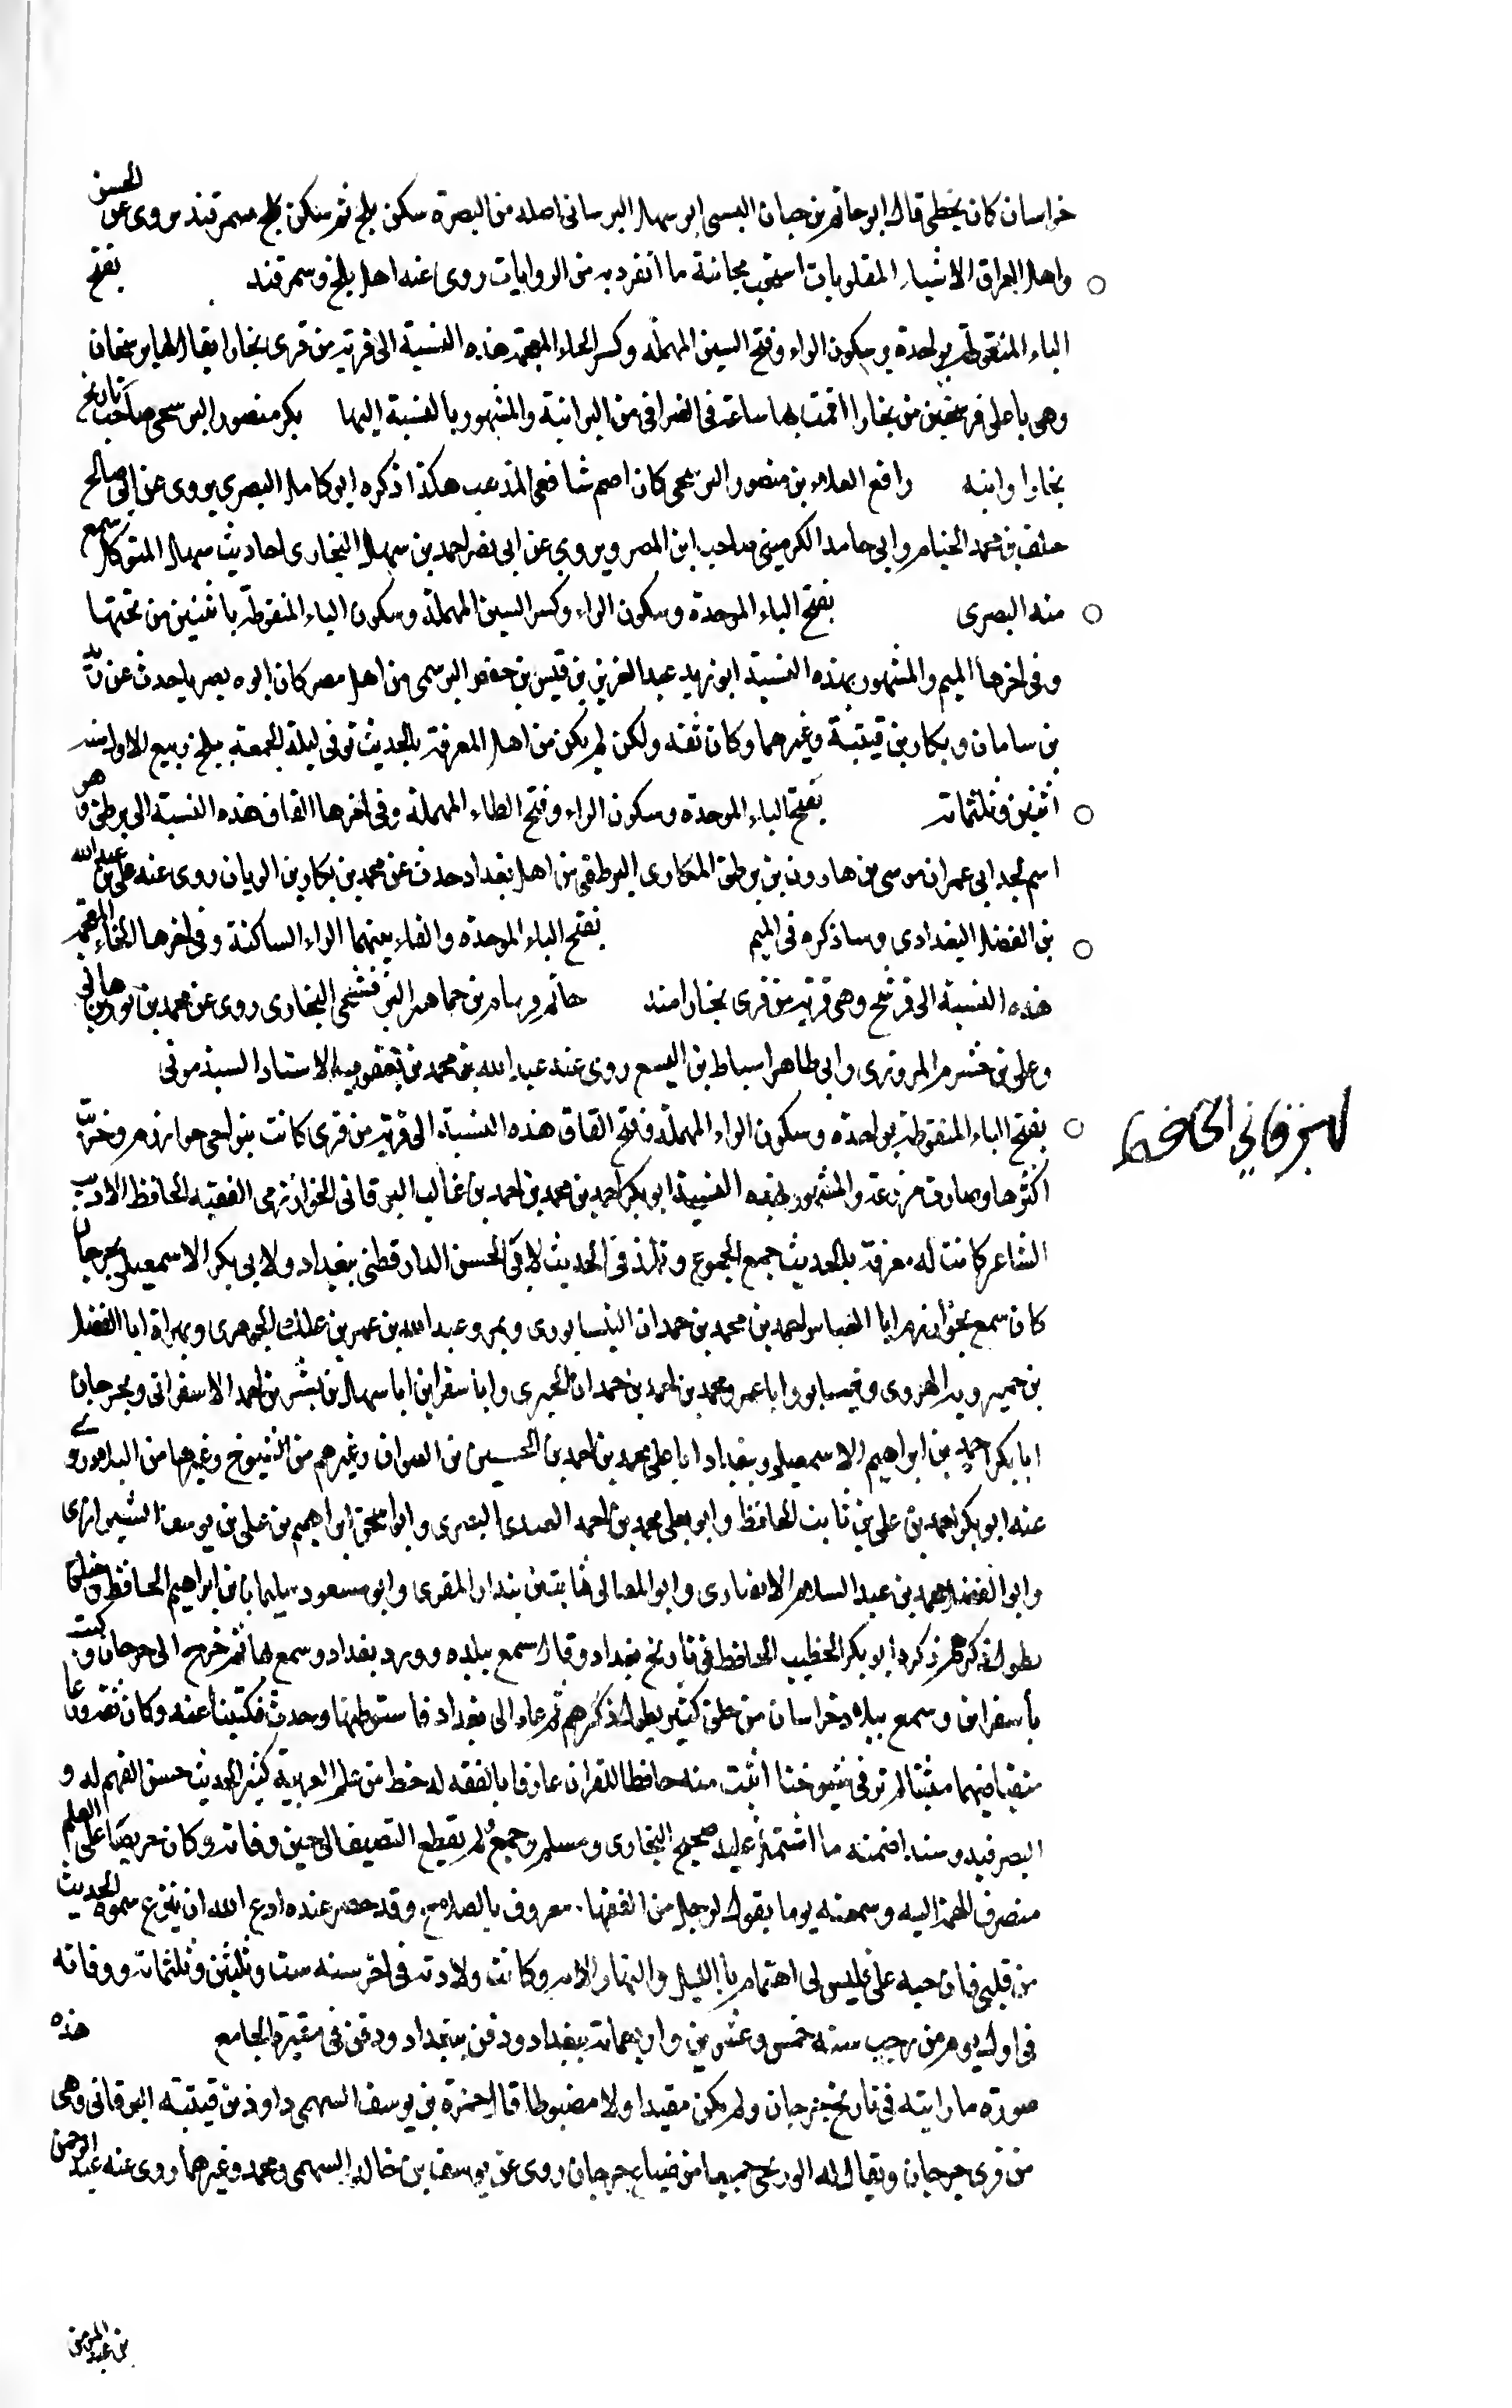 خراسان كان يخطى قال ابو حاتم بن حبان البستى ابو سهل البرسانى اصله من البصرة سكن بلخ ثم سكن بلخ سمرقند يروى عن الحسن
واهل العراق الاشياء المقلوبات استحب مجانبة ما انفرد به من الروايات روى عنه اهل بلخ وسمرقند بفتح
الباء المنقوطة بواحدة وسكون الراء وفتح السين المهملة وكسر الخاء المعجمة هذه النسبة الى قرية من قرى بخارا يقال لها برسخان
وهى باعلى فرسخين من بخارا اقمت بها ساعة فى انصرافى من البرانية والمشهور بالنسبة اليها بكر منصور البرسخى صاحب تاريخ
بخارا وابنه رافع العلاء بن منصور البرسخى كان اصم شافعى المذهب هكذا ذكره ابو كامل البصرى يروى عن ابى صالح
خلف بن محمد الخيام وابى حامد الكرمينى صاحب ابن المصر ويروى عن ابى نصر احمد بن سهل البخارى احاديث سهل المتوكل سمع
منه البصرى بفتح الباء الموحدة وسكون الراء وكسر السين المهملة وسكون الياء المنقوطة باثنين من تحتها
وفى اخرها الميم والمشهور بهذه النسبة ابو زيد عبد العزيز بن قيس بن حفص البرسمى من اهل مصر كان ابوه بصريا حدث عن يزيد
بن سامان وبكار بن قتيبة وغيرهما وكان ثقة ولكن لم يكن من اهل المعرفة بالحديث توفى ليلة الجمعة سلخ ربيع الاول سنة
اثنين وثلثمائة بفتح الباء الموحدة وسكون الراء وفتح الطاء المهملة وفى اخرها القاف هذه النسبة الى برطق وهو
اسم لجد ابى عمران موسى بن هارون بن برطق المكارى البرطقى من اهل بغداد حدث عن محمد بن بكار بن الريان روى عنه على بن عبد الله
بن الفضل البغدادى وساذكره فى الميم بفتح الباء الموحدة والفاء بينهما الراء الساكنة وفى اخرها الخاء المعجمة
هذه النسبة الى فرشخ وهى قرية من قرى بخارا منه حاتم بن جماهر البرفشخى البخارى روى عن محمد بن هانى
وعلى بن خشرم المروزى وابى طاهر اسباط بن اليسع روى عنه عبد الله بن محمد بن يعقوب الاستاد السبذمونى
البرقانى الحافظ
بفتح الباء المنقوطة بواحدة وسكون الراء المهملة وفتح القاف هذه النسبة الى قرية من قرى كانت بنواحى خوارزم وخربت
اكثرها وصارت مزرعة والمشهور بهذه النسبة ابو بكر احمد بن محمد بن احمد بن غالب البرقانى الخوارزمى الفقيه الحافظ الاديب
الشاعر كانت له معرفة بالحديث جمع الجموع وتلمذ فى الحديث لابى الحسن الدارقطنى ببغداد ولابى بكر الاسمعيلى بجرجان
كان سمع بخوارزم ابا العباس احمد بن محمد بن حمدان النيسابورى وبمرو عبد الله بن عمر بن علك الجوهرى وبهراة ابا الفضل
بن خميرويه الهروى وبنيسابور ابا عمرو محمد بن احمد بن حمدان الحيرى وباسفراين ابا سهل بن بشر بن احمد الاسفراينى وبجرجان
ابا بكر احمد بن ابراهيم الاسمعيلى وببغداد ابا على محمد بن احمد بن الحسن بن الصواف وغيرهم من الشيوخ وغيرها من البلاد روى
عنه ابو بكر احمد بن على بن ثابت الحافظ وابو يعلى محمد بن احمد العبدى البصرى وابو اسحق ابراهيم بن على بن يوسف الشيرازى
وابو الفضل محمد بن عبد السلام الانصارى وابو المعالى ثابت بن بندار المقرى وابو مسعود سليمان بن ابراهيم الحافظ وخلق
يطول ذكرهم ذكره ابو بكر الخطيب الحافظ فى تاريخ بغداد وقال سمع ببلده وورد بغداد وسمع بها ثم خرج الى جرجان وكتب
باسفراين وسمع ببلاد خراسان من خلق كثير يطول ذكرهم ثم عاد الى بغداد فاستوطنها وحدث فكتبنا عنه وكان ثقة ورعا
متقنا فهما مثبتا لم نر فى شيوخنا اثبت منه حافظا للقران عارفا بالفقه له حظ من علم العربية كثير الحديث حسن الفهم له و
البصر فيه وسند اضمنه ما اشتمل عليه صحيح البخارى ومسلم وجمع ولم يقطع التصنيف الى حين وفاته وكان حريصا على العلم
منصرف الهمة اليه وسمعته يوما يقول لرجل من الفقهاء معروف بالصلاح وقد حضر عنده ادع الله ان ينزع شهوة الحديث
من قلبى فان حبه غلب على فليس لى اهتمام بالليل والنهار الا به وكانت ولادته فى اخر سنة ست وثلثين وثلثمائة ووفاته
فى اول يوم من رجب سنة خمس وعشرين واربعمائة ببغداد ودفن ببغداد ودفن فى مقبرة الجامع هذه
صورة ما رايته فى تاريخ جرجان ولم يكن مقيدا ولا مضبوطا قال حمزة بن يوسف السهمى داود بن قتيبة البرقانى وهى
من قرى جرجان ويقال له الورنخى جميعا من ضياع جرجان روى عن يوسف بن خالد السهمى ومحمد وغيرهما روى عنه عبد الرحمن
بن عبد المومن